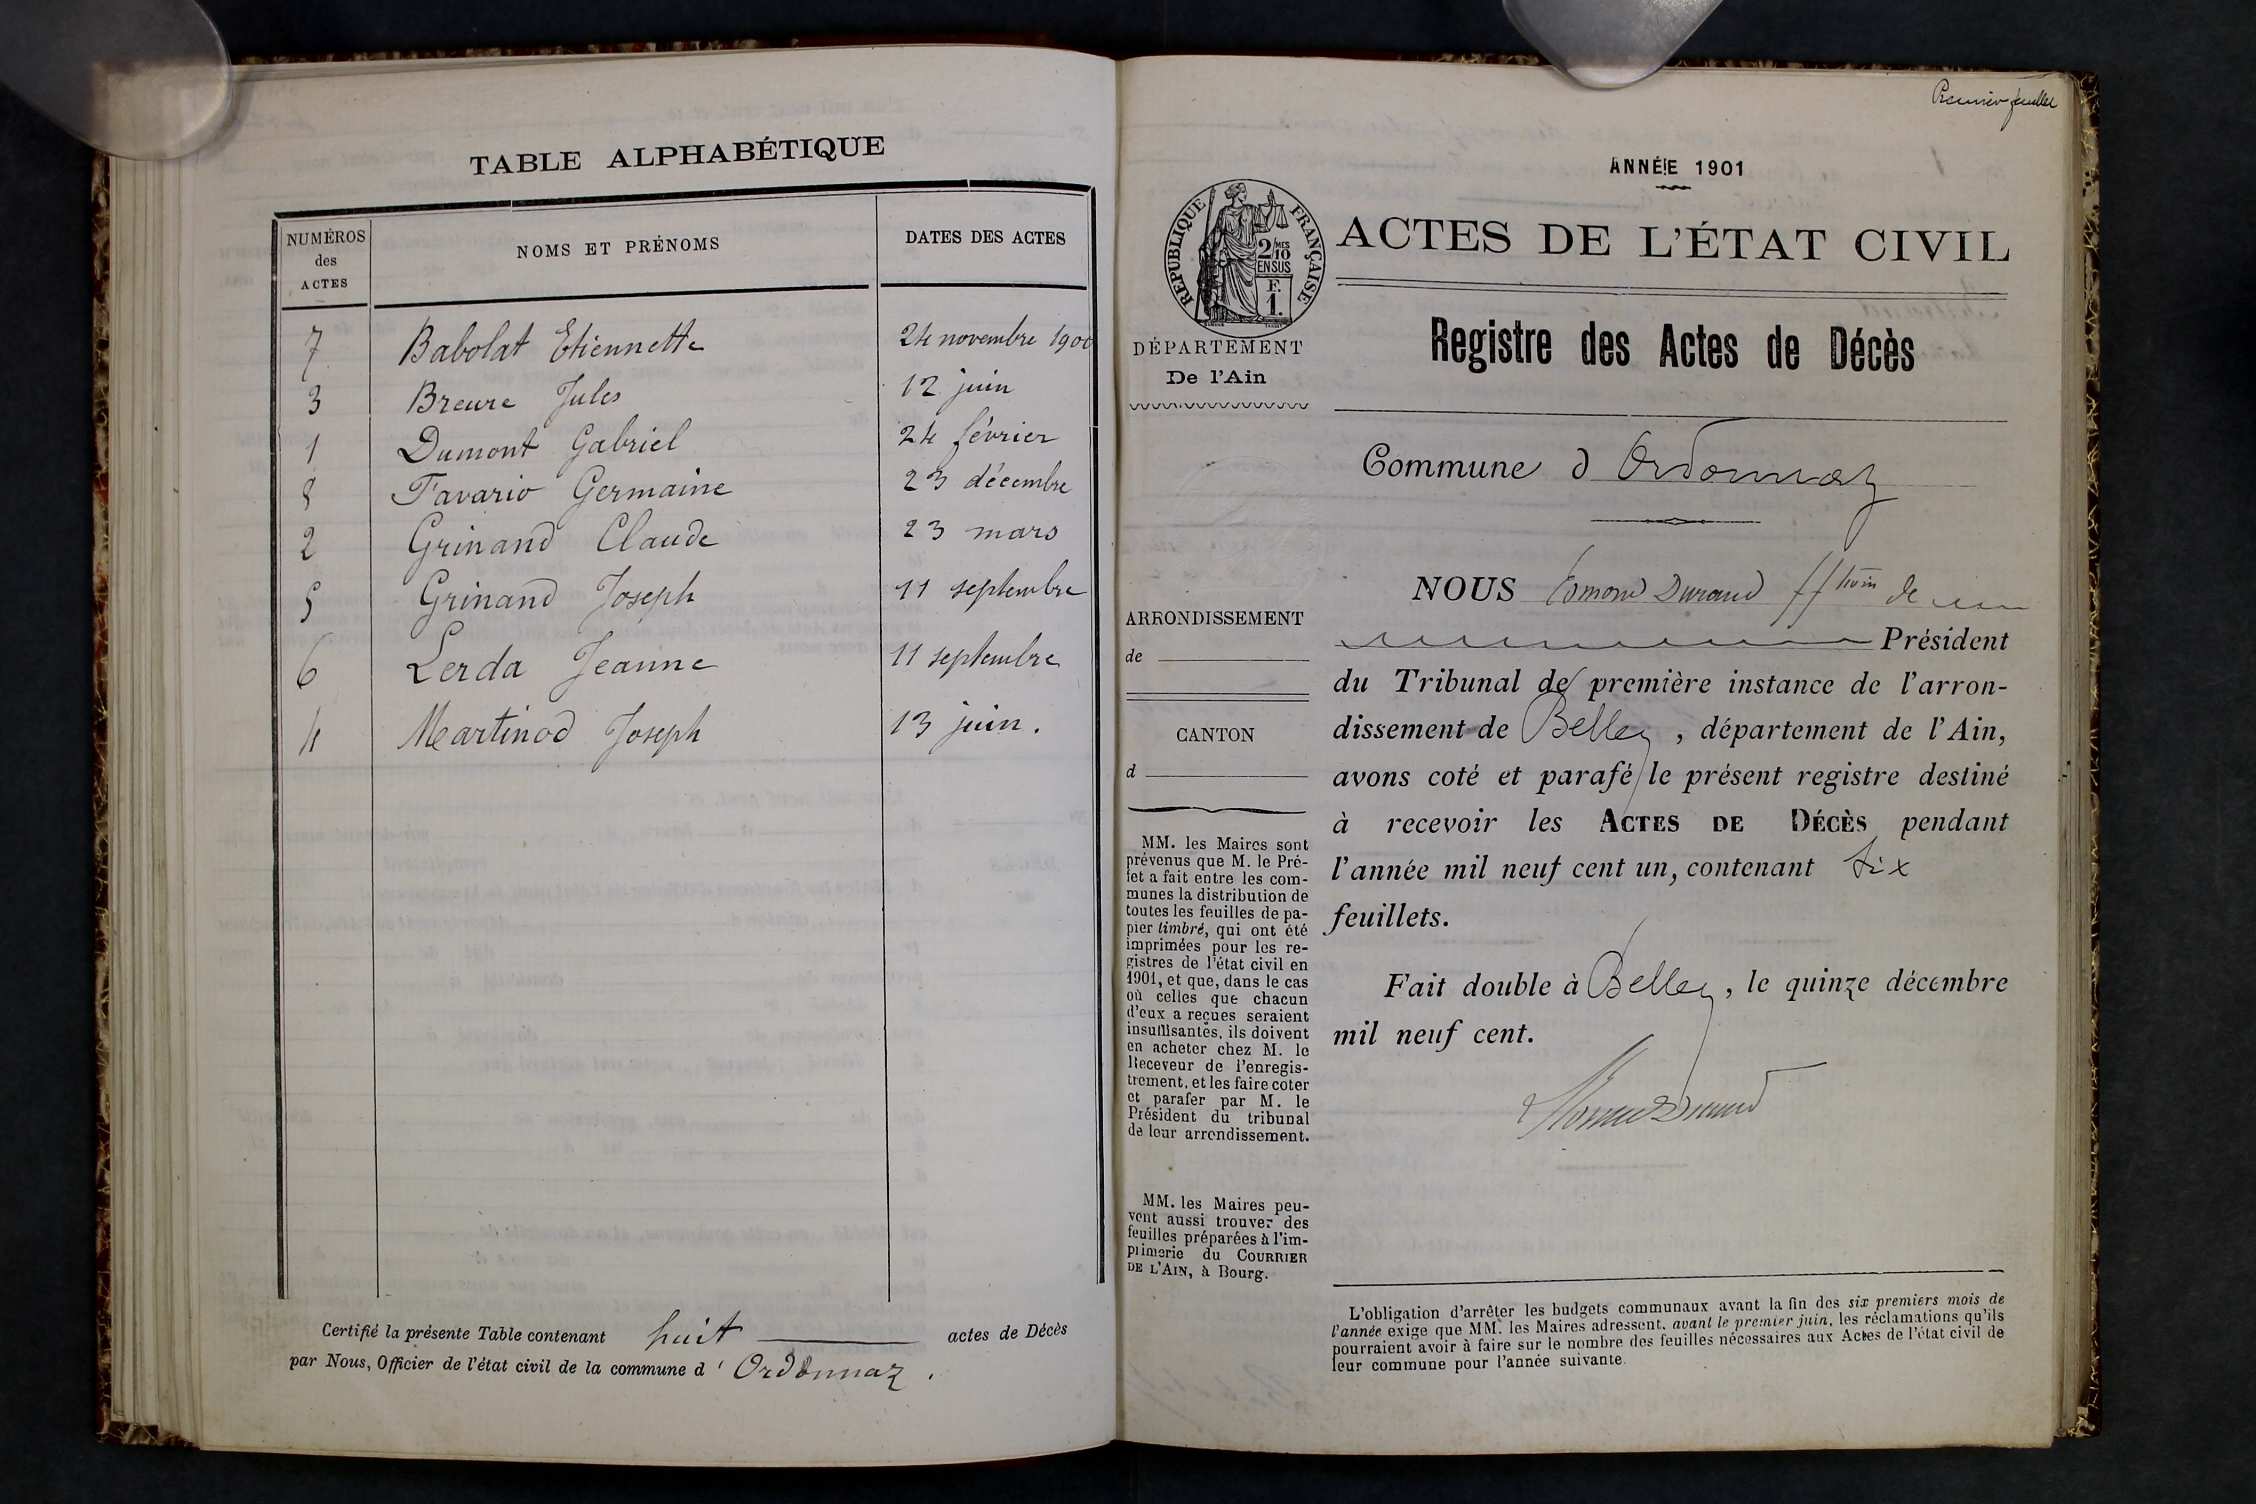 TABLE ALPHABÉTIQUE
NUMÉROS des ACTES
NOMS ET PRÉNOMS
DATES DES ACTES
7 Babolat Etiennette 24 novembre 1900
3 Breure Jules 12 juin
1 Dumont Gabriel 24 février
8 Favario Germaine 23 décembre
2 Grinand Claude 23 mars
5 Grinand Joseph 11 septembre
6 Lerda Jeanne 11 septembre
4 Martinod Joseph 13 juin.
Certifié la présente Table contenant huit actes de Décès
par Nous, Officier de l'état civil de la commune d'Ordonnaz.
Premier feuillet
ANNÉE 1901
RÉPUBLIQUE FRANÇAISE
2/10 MES
EN SUS
F.
1.
ACTES DE L'ÉTAT CIVIL
DÉPARTEMENT
De l'Ain
Registre des Actes de Décès
Commune d Ordonnaz
ARRONDISSEMENT
de
CANTON
d
MM. les Maires sont
prévenus que M. le Pré-
fet a fait entre les com-
munes la distribution de
toutes les feuilles de pa-
pier timbré, qui ont été
imprimées pour les re-
gistres de l'état civil en
1901, et que, dans le cas
où celles que chacun
d'eux a reçues seraient
insuffisantes, ils doivent
en acheter chez M. le
Receveur de l'enregis-
trement, et les faire coter
et parafer par M. le
Président du tribunal
de leur arrondissement.
MM. les Maires peu-
vent aussi trouver des
feuilles préparées à l'im-
primerie du COURRIER
DE L'AIN, à Bourg.
NOUS Edmond Durand ff de
Président
du Tribunal de première instance de l'arron-
dissement de Belley, département de l'Ain,
avons coté et parafé le présent registre destiné
à recevoir les ACTES DE DÉCÈS pendant
l'année mil neuf cent un, contenant six
feuillets.
Fait double à Belley, le quinze décembre
mil neuf cent.
L'obligation d'arrêter les budgets communaux avant la fin des six premiers mois de
l'année exige que MM. les Maires adressent, avant le premier juin, les réclamations qu'ils
pourraient avoir à faire sur le nombre des feuilles nécessaires aux Actes de l'état civil de
leur commune pour l'année suivante.